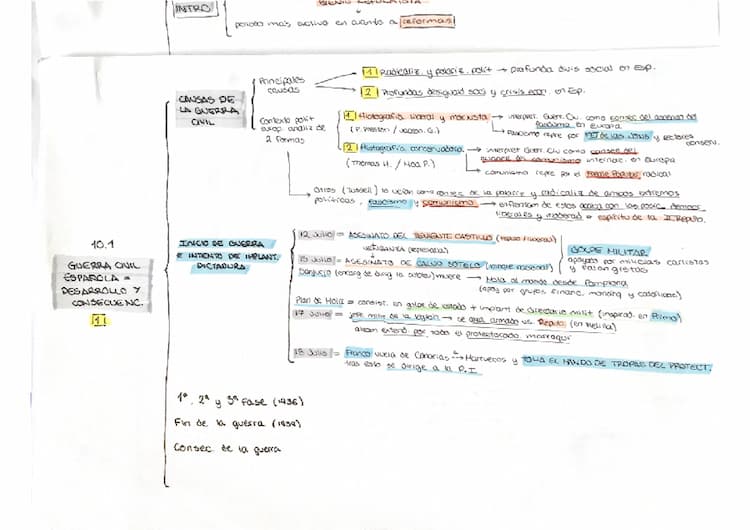 INTRO
periodo más activo en cuanto a reformas
10.1
GUERRA CIVIL
ESPAÑOLA =
DESARROLLO Y
CONSECUENC.
1
CAUSAS DE
LA GUERRA
CIVIL
Principales
causas
1 Radicaliz. y polariz. polít → profunda divis social en Esp.
2 Profundas desigual soci y crisis econ. en Esp.
Contexto polít
europ. analiz de
2 formas
1 Histografía liberal y marxista → interpret. Guerr. Civ. como consec del ascenso del
fascismo en Europa
(P. Preston / Jackson. G.)
→ Fascismo repre por
conserv.
2 Histografía conservadora → interpret Guerr Civ como consec del
comunismo internac. en Europa
(Thomas H. / Moa P.)
→ comunismo repre por el Frente Popular radical
→ Otros (Tussell) la veían como consec de la polariz y radicaliz de ambos extremos
políticos, fascismo y comunismo → enfrentam de estos
liberales y moderad = espíritu de la II Repúb.
INICIO DE GUERRA
E INTENTO DE IMPLANT.
DICTADURA
12 Julio = ASESINATO DEL TENIENTE CASTILLO
VENGANZA (represalia)
13 Julio = ASESINATO DE CALVO SOTELO
GOLPE MILITAR
apoyado por milicias carlistas
y falangistas
Sanjurjo (encarg de dirig la sublev) muere → Mola al mando desde Pamplona
(apoy por grupos financ. monárq y católicos)
Plan de Mola = consist. en golpe de estado + implant de directorio milit (inspirad. en Primo)
17 Julio = jefe milit de la legión → se alza armado vs. Repúb. (en Melilla)
alzam extend por todo el protectorado marroquí
18 Julio = Franco vuela de Canarias a Marruecos y TOMA EL MANDO DE TROPAS DEL PROTECT.
tras esto se dirige a la P.I
1ª, 2ª y 3ª Fase (1936)
Fin de la guerra (1939)
Consec de la guerra